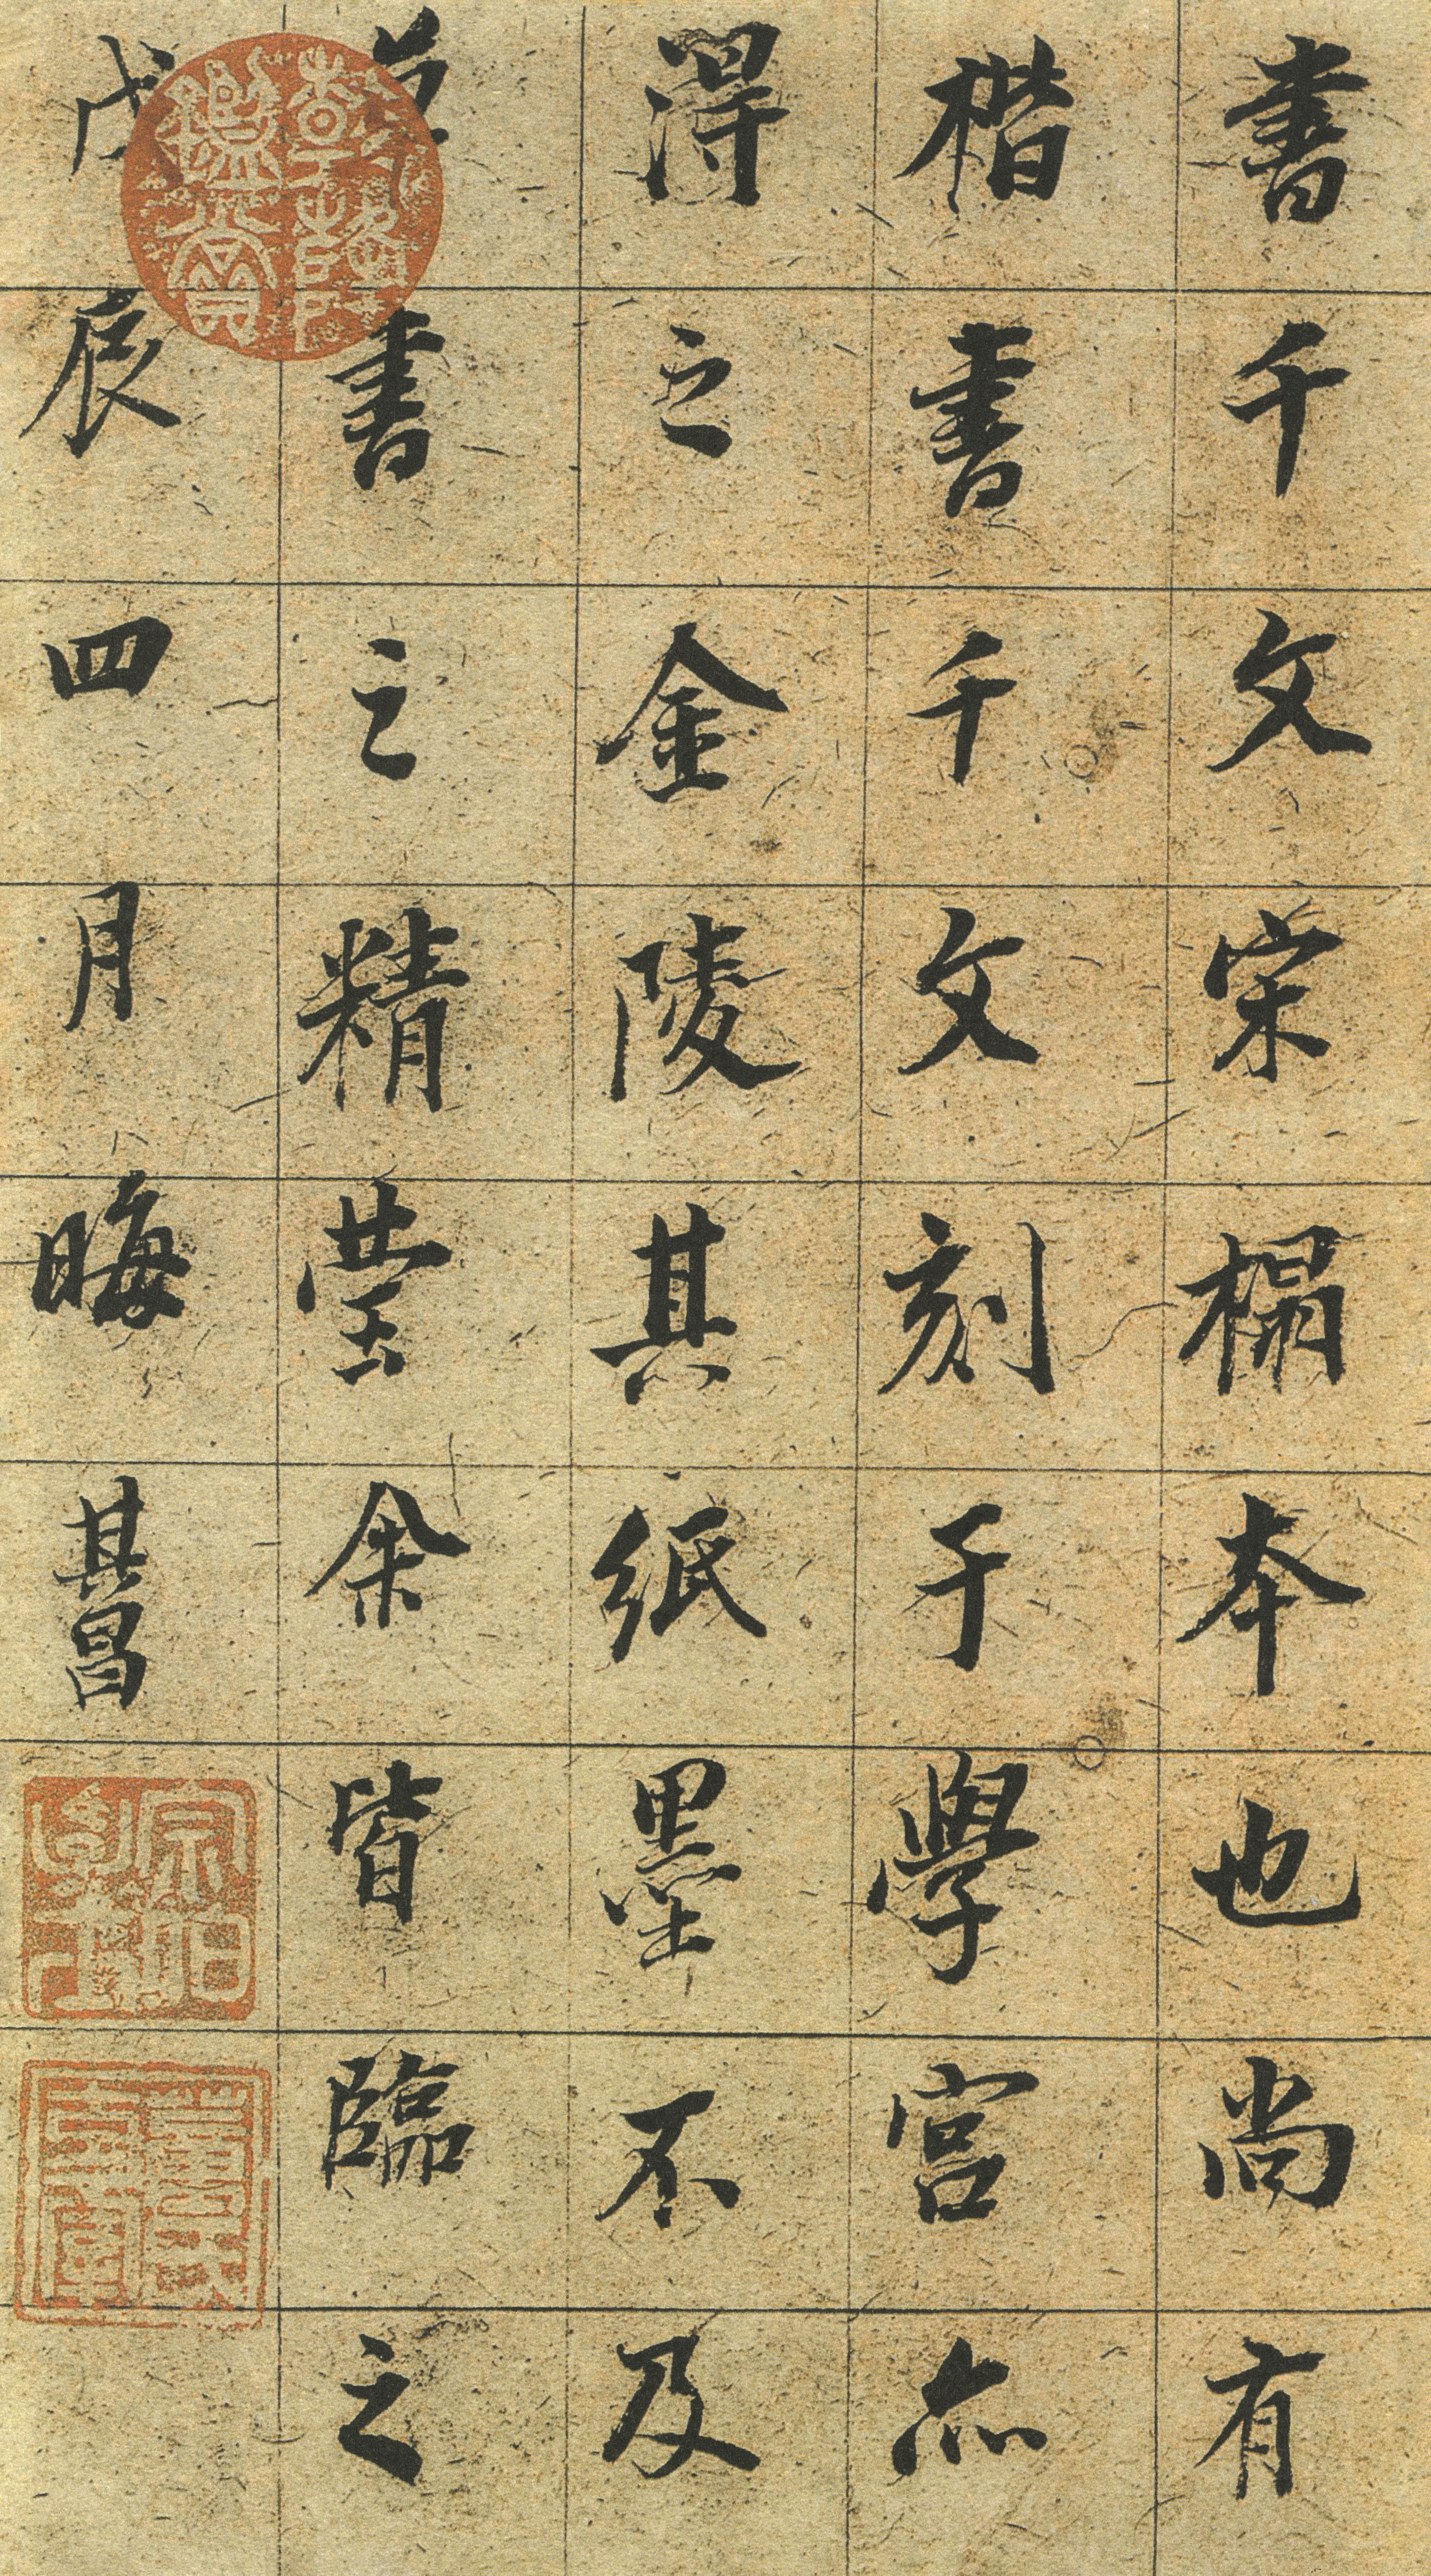 書千文宋榻本也尚有
楷書千文刻于學宮亦
得之金陵其紙墨不及
草書之精瑩余皆臨之
戊辰四月晦其昌
宗伯學士
董氏玄宰